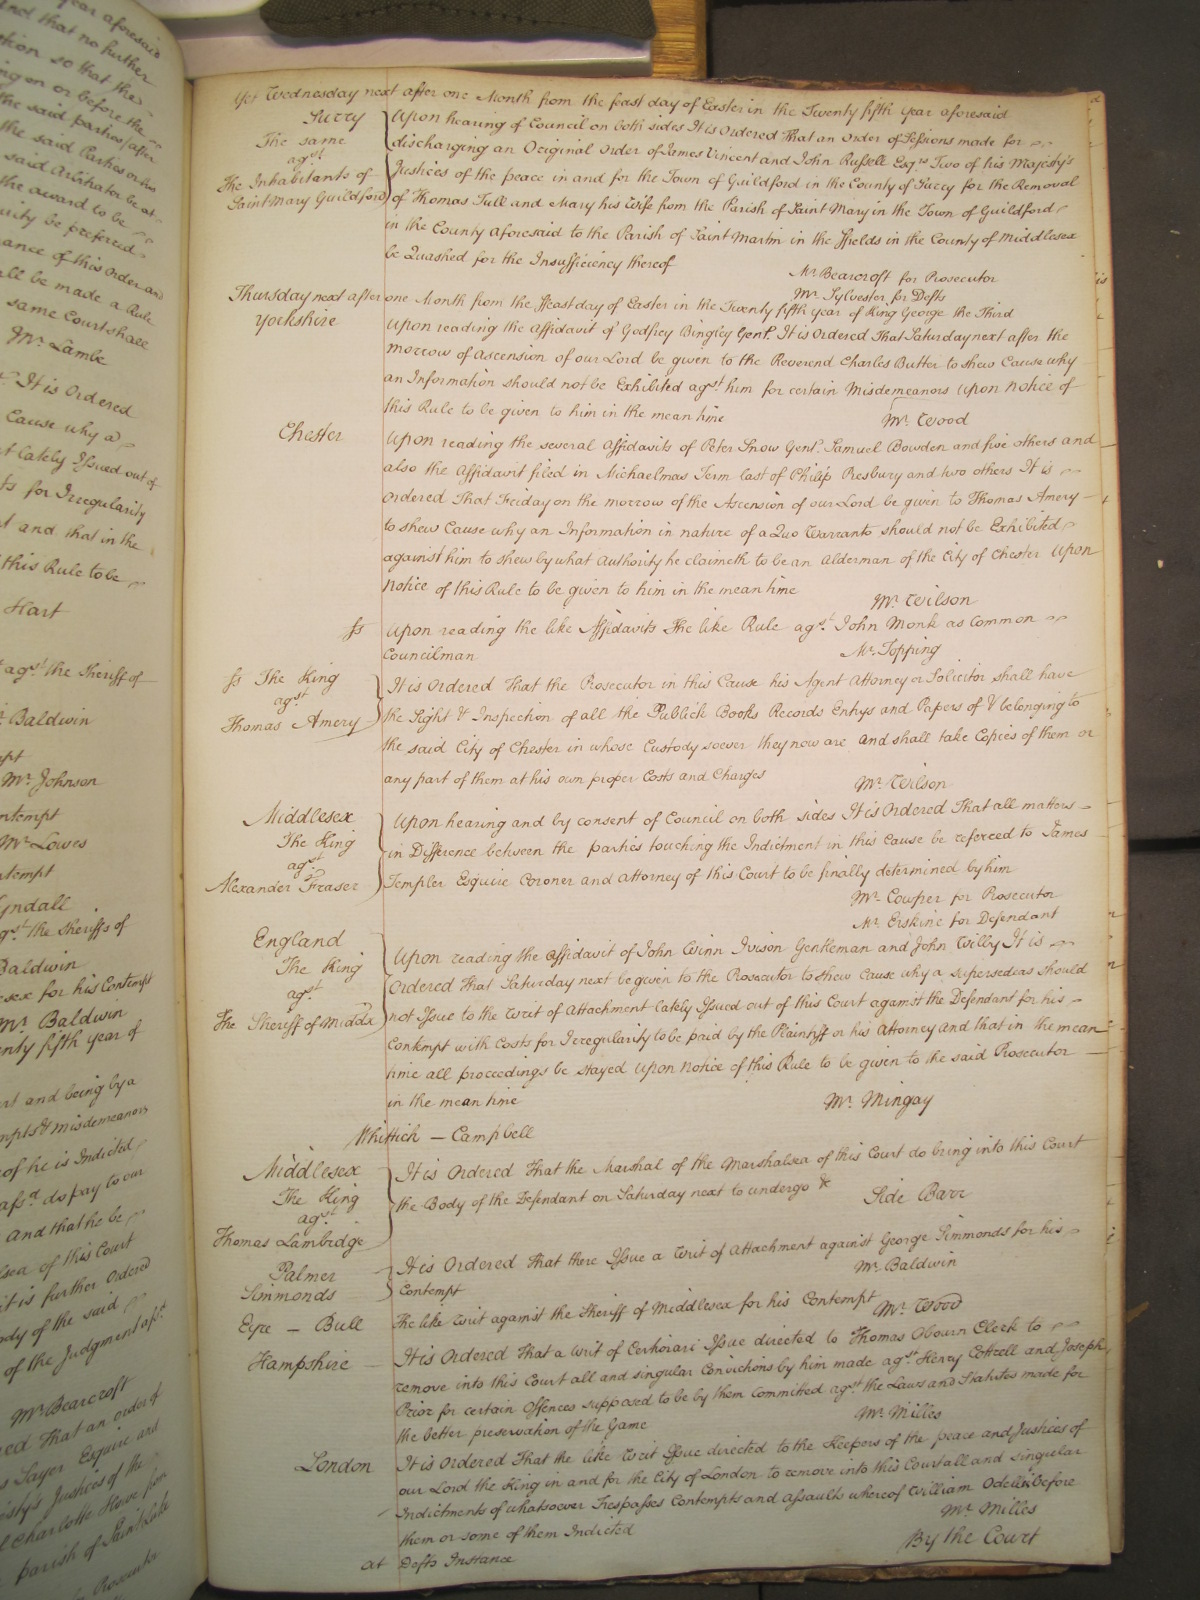 year aforesaid
and that no further
tion so that the
ing on or before the
the said parties after
the said Parties or his
said Arbitrator be at
the award to be
be preferred
ance of this Order and
all be made a Rule
same Court shall
Mr. Lambe
It is Ordered
Cause why a
lately Issued out of
for Irregularity
and that in the
this Rule to be
Hart
agst. the Sheriff of
Baldwin
Mr. Johnson
ntempt
Mr. Lowes
tempt
yndall
agst. the Sheriffs of
Baldwin
sex for his Contempt
Mr. Baldwin
nty fifth year of
and being by a
mpts & misdemeanors
of he is Indicted
afsd. do pay to our
and that he be
sea of this Court
it is further Ordered
ody of the said
of the Judgment afsd.
Mr. Bearcroft
ed That an order of
Sayer Esquire and
sty's Justices of the
Charlotte Howe from
parish of Saint Luke
Prosecutor
Yet Wednesday next after one Month from the feast day of Easter in the Twenty fifth year aforesaid
Surry
The same
agst.
The Inhabitants of
Saint Mary Guildford
Upon hearing of Council on both sides It is Ordered That an Order of Sessions made for
discharging an Original Order of James Vincent and John Russell Esqrs. Two of his Majesty's
Justices of the peace in and for the Town of Guildford in the County of Surry for the Removal
of Thomas Tull and Mary his Wife from the Parish of Saint Mary in the Town of Guildford
in the County aforesaid to the Parish of Saint Martin in the ffields in the County of Middlesex
be Quashed for the Insufficiency thereof
Mr. Bearcroft for Prosecutor
Mr. Sylvester for Defts
Thursday next after one Month from the ffeast day of Easter in the Twenty fifth year of King George the Third
Yorkshire
Upon reading the affidavit of Godfrey Bingley Gent. It is Ordered That Saturday next after the
Morrow of Ascension of our Lord be given to the Reverend Charles Butter to shew Cause why
an Information should not be Exhibited agst. him for certain Misdemeanors Upon Notice of
this Rule to be given to him in the mean time
Mr. Wood
Chester
Upon reading the several Affidavits of Peter Snow Gent. Samuel Bowden and five others and
also the Affidavit filed in Michaelmas Term last of Philip Presbury and two others It is
Ordered That Friday on the morrow of the Ascension of our Lord be given to Thomas Amery
to shew Cause why an Information in nature of a Quo Warranto should not be Exhibited
against him to shew by what Authority he claimeth to be an Alderman of the City of Chester Upon
Notice of this Rule to be given to him in the mean time
Mr. Wilson
ss
Upon reading the like Affidavits The like Rule agst. John Monk as Common
Councilman
Mr. Topping
ss The King
agst.
Thomas Amery
It is Ordered That the Prosecutor in this Cause his Agent Attorney or Solicitor shall have
the Sight & Inspection of all the Publick Books Records Entrys and Papers of & belonging to
the said City of Chester in whose Custody soever they now are and shall take Copies of them or
any part of them at his own proper Costs and Charges
Mr. Wilson
Middlesex
The King
agst.
Alexander Fraser
Upon hearing and by consent of Council on both sides It is Ordered That all matters
in Difference between the parties touching the Indictment in this Cause be referred to James
Templer Esquire Coroner and Attorney of this Court to be finally determined by him
Mr. Cowper for Prosecutor
Mr. Erskine for Defendant
England
The King
agst.
The Sheriff of Middx
Upon reading the affidavit of John Winn Ivison Gentleman and John Willby It is
Ordered That Saturday next be given to the Prosecutor to shew Cause why a supersedeas should
not Issue to the Writ of Attachment lately Issued out of this Court against the Defendant for his
Contempt with Costs for Irregularity to be paid by the Plaintiff or his Attorney and that in the mean
time all proceedings be stayed Upon Notice of this Rule to be given to the said Prosecutor
in the mean time
Mr. Mingay
Whittich — Campbell
Middlesex
The King
agst.
Thomas Lambridge
It is Ordered That the Marshal of the Marshalsea of this Court do bring into this Court
the Body of the Defendant on Saturday next to undergo &c
Side Barr
Palmer
Simmonds
It is Ordered That there Issue a Writ of Attachment against George Simmonds for his
Contempt
Mr. Baldwin
Eyre — Bull
The like Writ against the Sheriff of Middlesex for his Contempt
Mr. Wood
Hampshire
It is Ordered That a Writ of Certiorari Issue directed to Thomas Obourn Clerk to
remove into this Court all and singular Convictions by him made agst. Henry Cottrell and Joseph
Prior for certain Offences supposed to be by them Committed agst the Laws and Statutes made for
the better preservation of the Game
Mr. Milles
London
It is Ordered That the like Writ Issue directed to the Keepers of the peace and Justices of
our Lord the King in and for the City of London to remove into this Court all and singular
Indictments of whatsoever Trespasses Contempts and Assaults whereof William Odell is before
them or some of them Indicted
Mr. Milles
at Defts Instance
By the Court